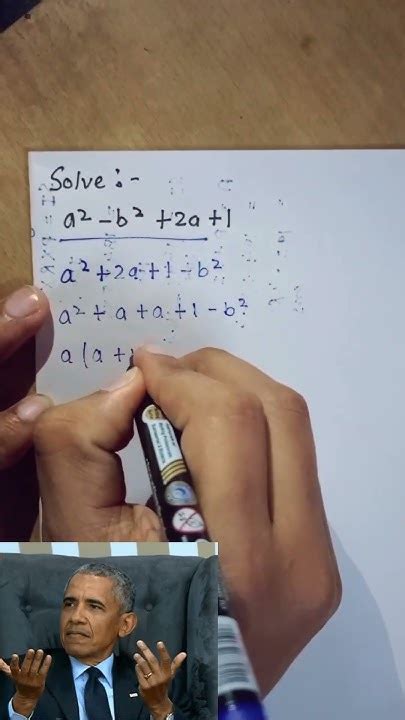 Solve :-
a² - b² + 2a + 1
a² + 2a + 1 - b²
a² + a + a + 1 - b²
a (a +